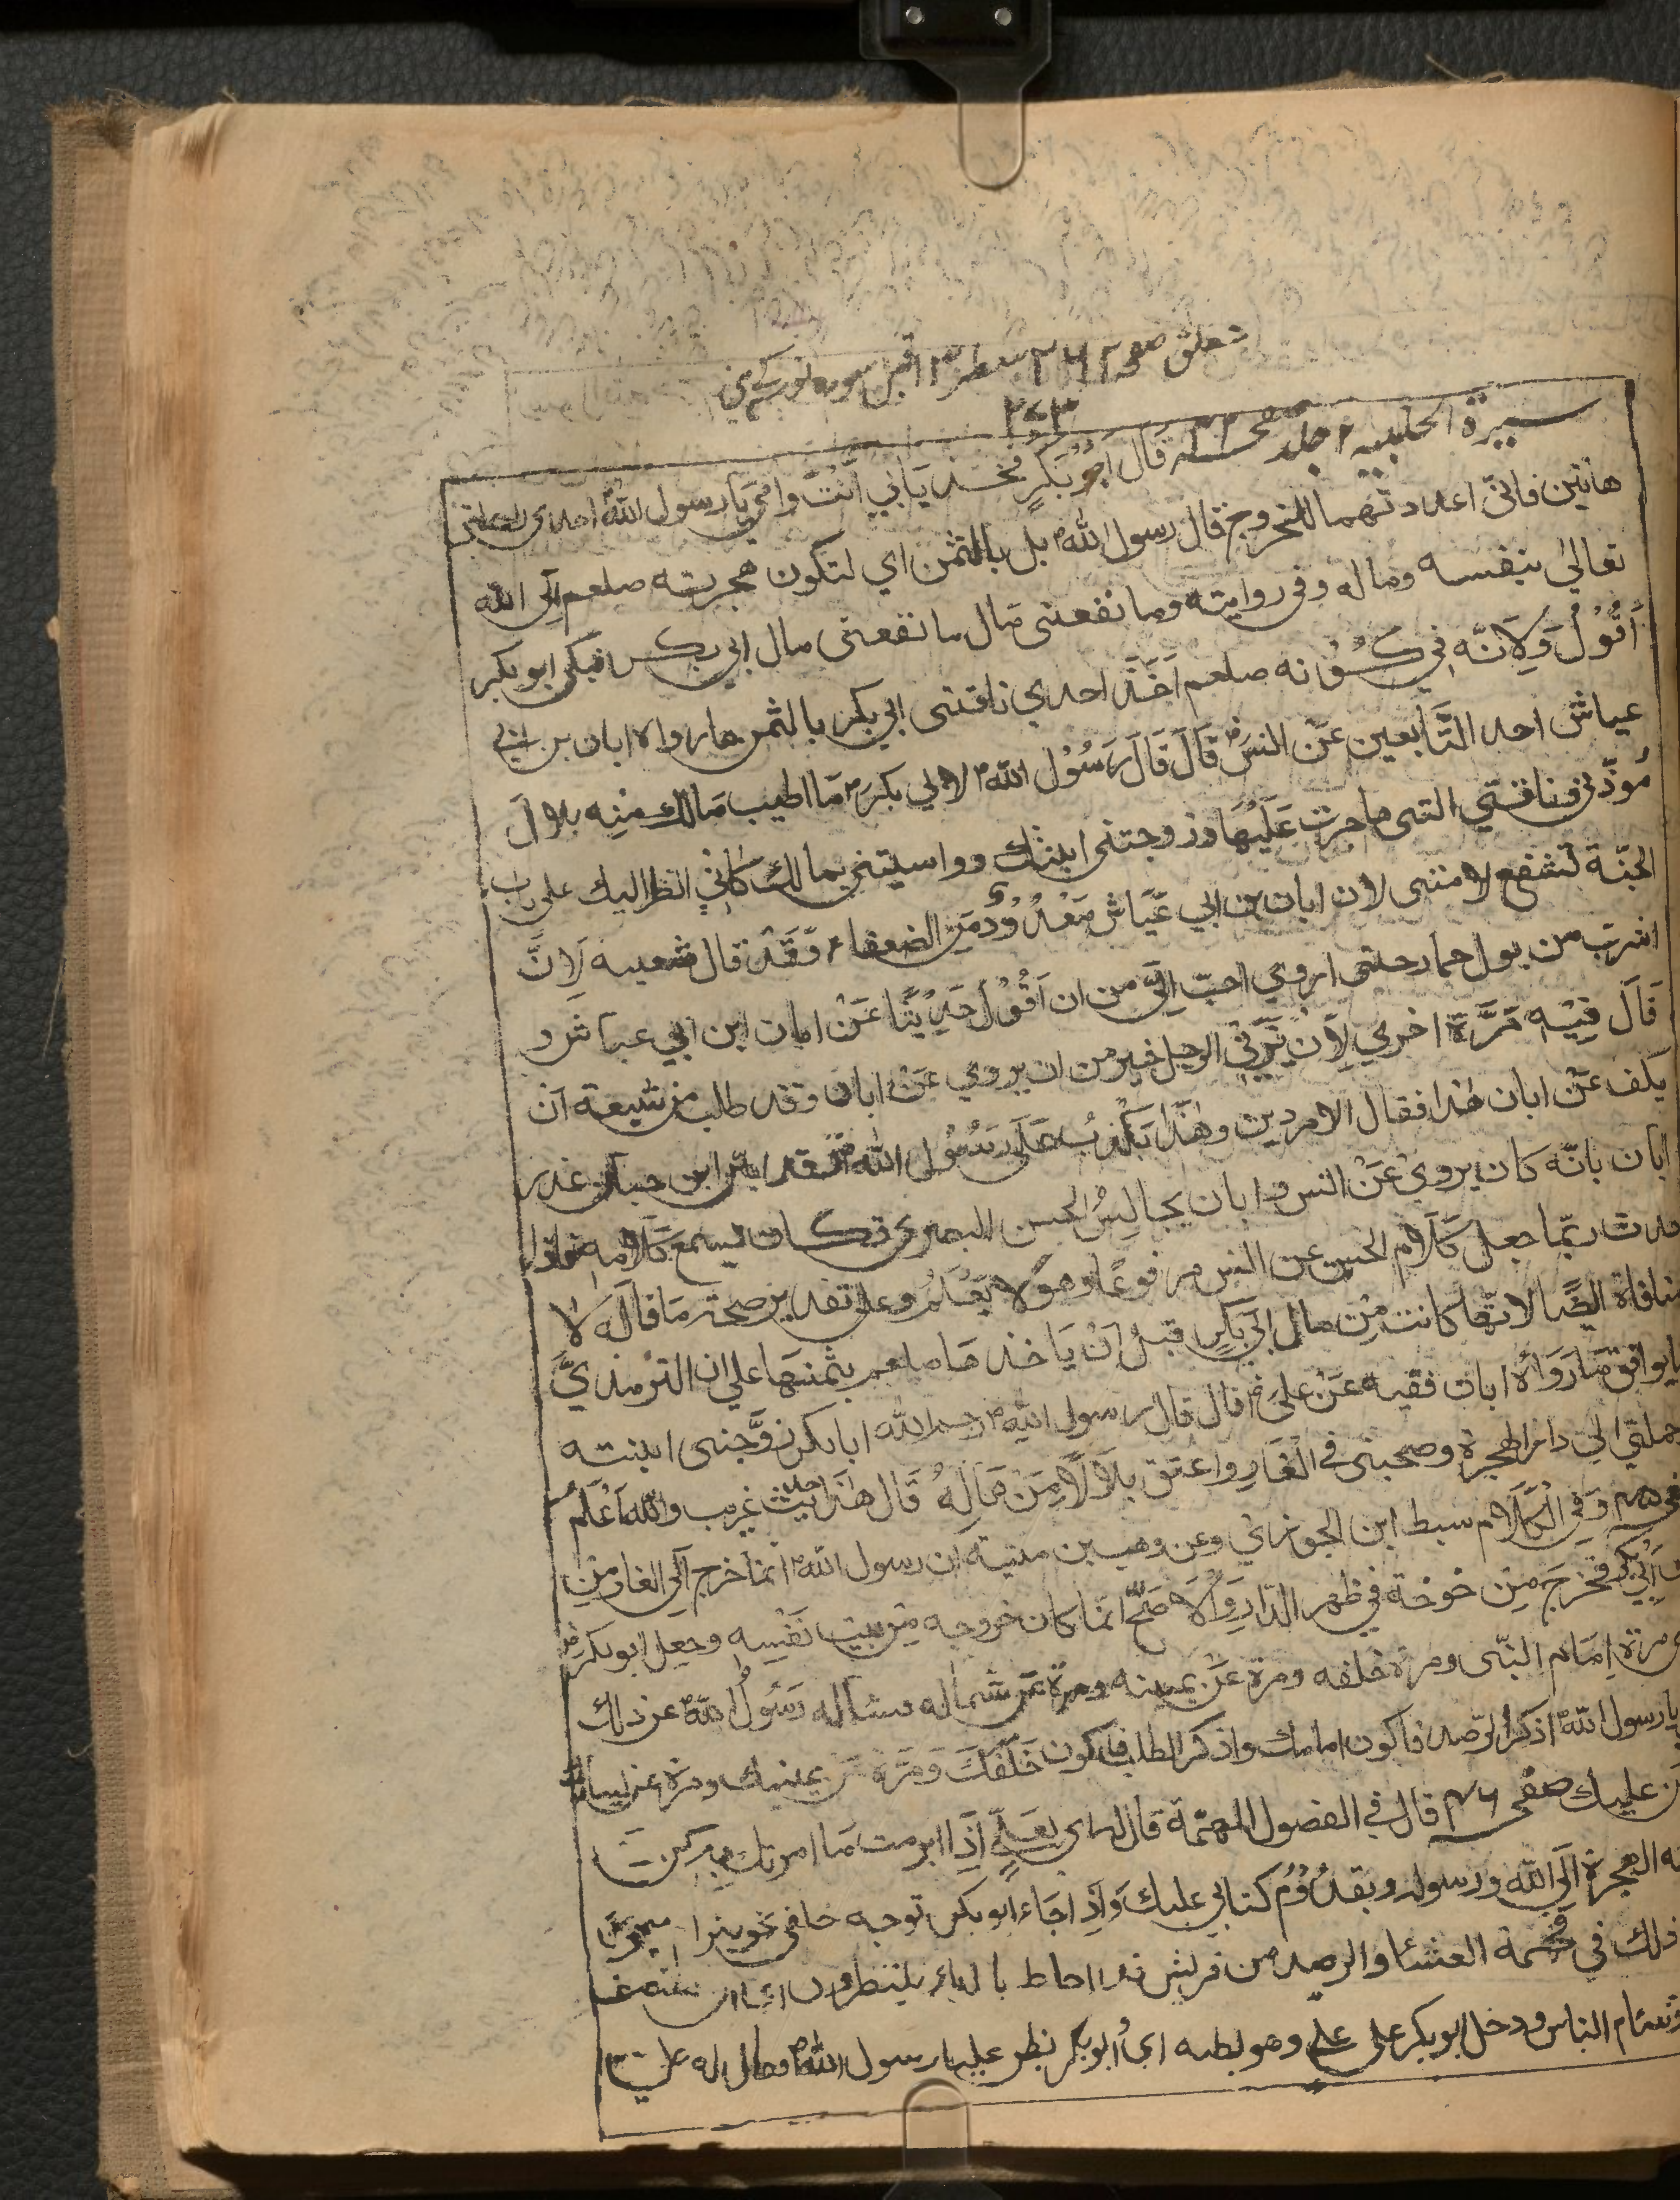 تعلق صفحہ ٢٦٢ سطر ١٣ قبل سورہ نور کے
٢٧٣
سيرة الحلبيه ٢ جلد صفحہ ٣٢ قال ابو بكر فخذ بابي انت وامي يا رسول الله احدى راحلتي
هاتين فاني اعددتهما للخروج قال رسول الله بل بالثمن اي لتكون هجرته صلعم الى الله
تعالى بنفسه وماله وفي رواية وما نفعني مال ما نفعني مال ابي بكر فبكى ابو بكر
أقول ولانه في كونه صلعم اخذ احدي ناقتي ابي بكر بالثمن ما رواه ابان بن ابي
عياش احد التابعين عن انس قال قال رسول الله لابي بكر ما اطيب مالك منه بلال
موذني وناقتي التي هاجرت عليها وزوجتني ابنتك وواسيتني بمالك كاني انظر اليك على باب
الجنة تشفع لامتي لان ابان بن ابي عياش معدود من الضعفاء وقد قال شعبه لان
اشرب من بول حمار حتى اروي احب الي من ان اقول حديثا عن ابان ابن ابي عياش و
قال فيه مرة اخري لان يزني الرجل خير من ان يروي عن ابان وقد طلب من شيعة ان
يكف عن ابان هذا فقال الامر دين وهذا يكذب على رسول الله وقد ابن حبان عذر
ابان بانه كان يروي عن انس وابان يجالس الحسن البصري فكان يسمع كلامه فاذا
حدث ربما جعل كلام الحسن عن انس مرفوعا وهو لا يعلم وعلى تقدير صحة ما قاله لا
منافاة ايضا لانها كانت من مال ابي بكر قبل ان ياخذها صلعم بثمنها على ان الترمذي
ما يوافق ما رواه ابان فقيه عن علي قال قال رسول الله رحم الله ابا بكر زوجني ابنته
وحملني الى دار الهجرة وصحبني في الغار واعتق بلالا من ماله قال هذا حديث غريب والله اعلم
وفي الكلام سبط ابن الجوزي وعن وهب بن منبه ان رسول الله انما خرج الى الغار من
بيت ابي بكر فخرج من خوخة في ظهر الدار والاصح انما كان خروجه من بيت نفسه وجعل ابو بكر
مرة امام النبي ومرة خلفه ومرة عن يمينه ومرة عن شماله فساله رسول الله عن ذلك
يا رسول الله اذكر الرصد فاكون امامك واذكر الطلب فاكون خلفك ومرة عن يمينك ومرة عن يسارك
عليك صفحہ ٣٦ قال في الفصول المهمة قال لعلي اذا ابرمت ما امرتك به
الهجرة الى الله ورسوله وبقدوم كتابي عليك واذا جاء ابو بكر توجه خلفي نحو بئر
ذلك في فحمة العشاء والرصد من قريش قد احاط بالدار ينتظرون ان
الناس ودخل ابو بكر على علي وهو يظنه اي ابو بكر يظن عليا رسول الله فقال له علي